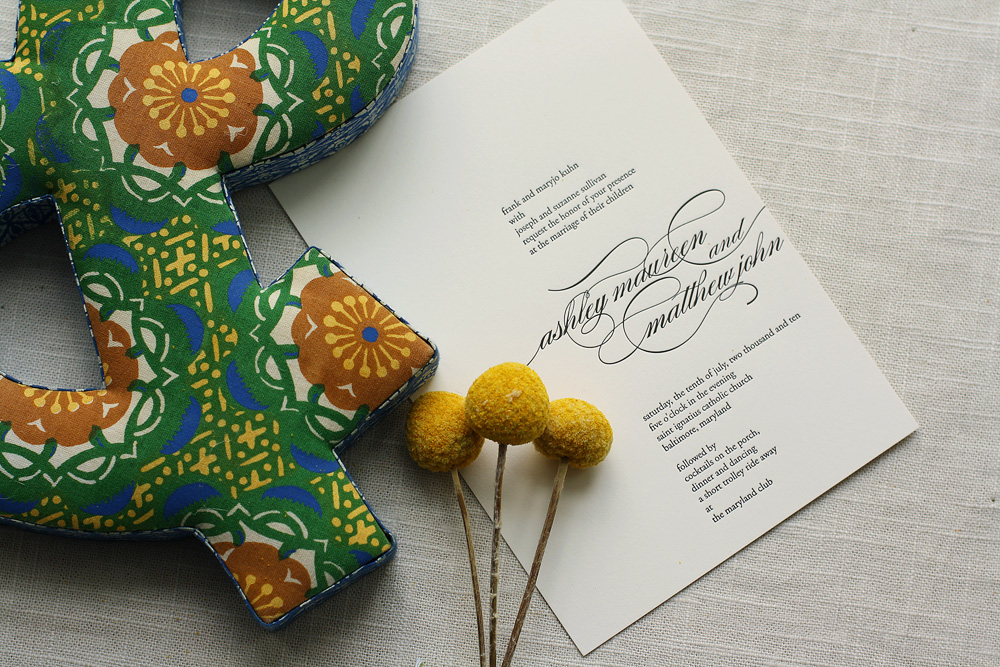 frank and maryjo kuhn
with
joseph and suzanne sullivan
request the honor of your presence
at the marriage of their children
ashley maureen
and
matthew john
saturday, the tenth of july, two thousand and ten
five o'clock in the evening
saint ignatius catholic church
baltimore, maryland
followed by
cocktails on the porch,
dinner and dancing
a short trolley ride away
at
the maryland club